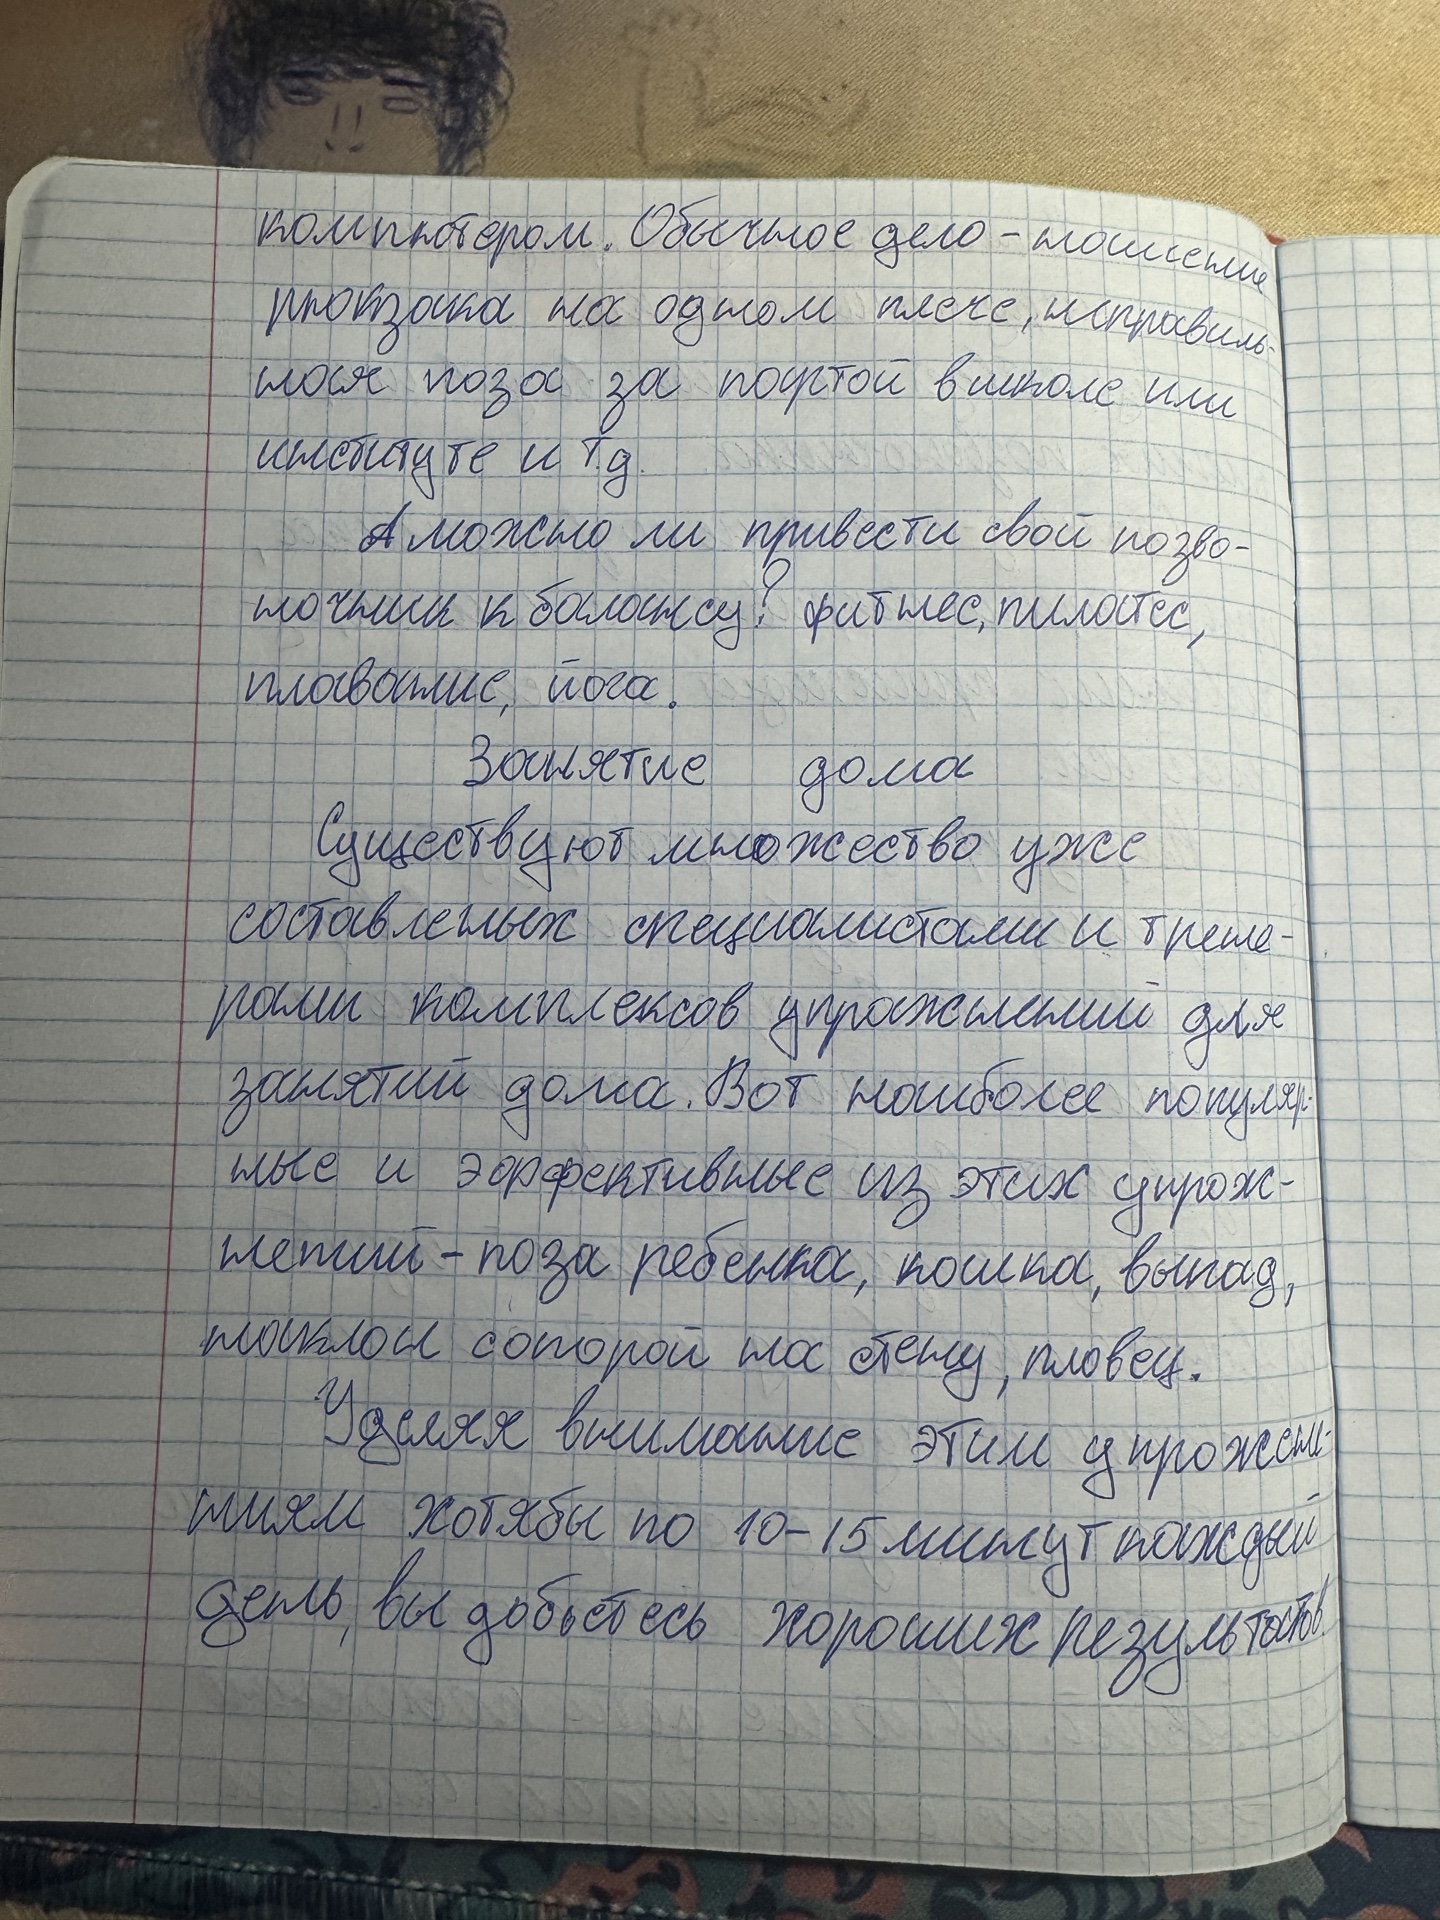 компютером. Обычное дело - ношение
рюкзака на одном плече, неправиль-
ная поза за партой в школе или
институте и т.д.
А можно ли привести свой позво-
ночник к балансу? фитнес, пилатес,
плавание, йога.
Занятие дома
Существуют множество уже
составленых специалистами и трене-
рами комплексов упражнений для
занятий дома. Вот наиболее популяр-
ные и эффективные из этих упраж-
нений - поза ребенка, кошка, выпад,
наклон с опорой на стену, пловец.
Уделяя внимание этим упражен-
ниям хотябы по 10-15 минут каждый
день, вы добьетесь хороших результатов.